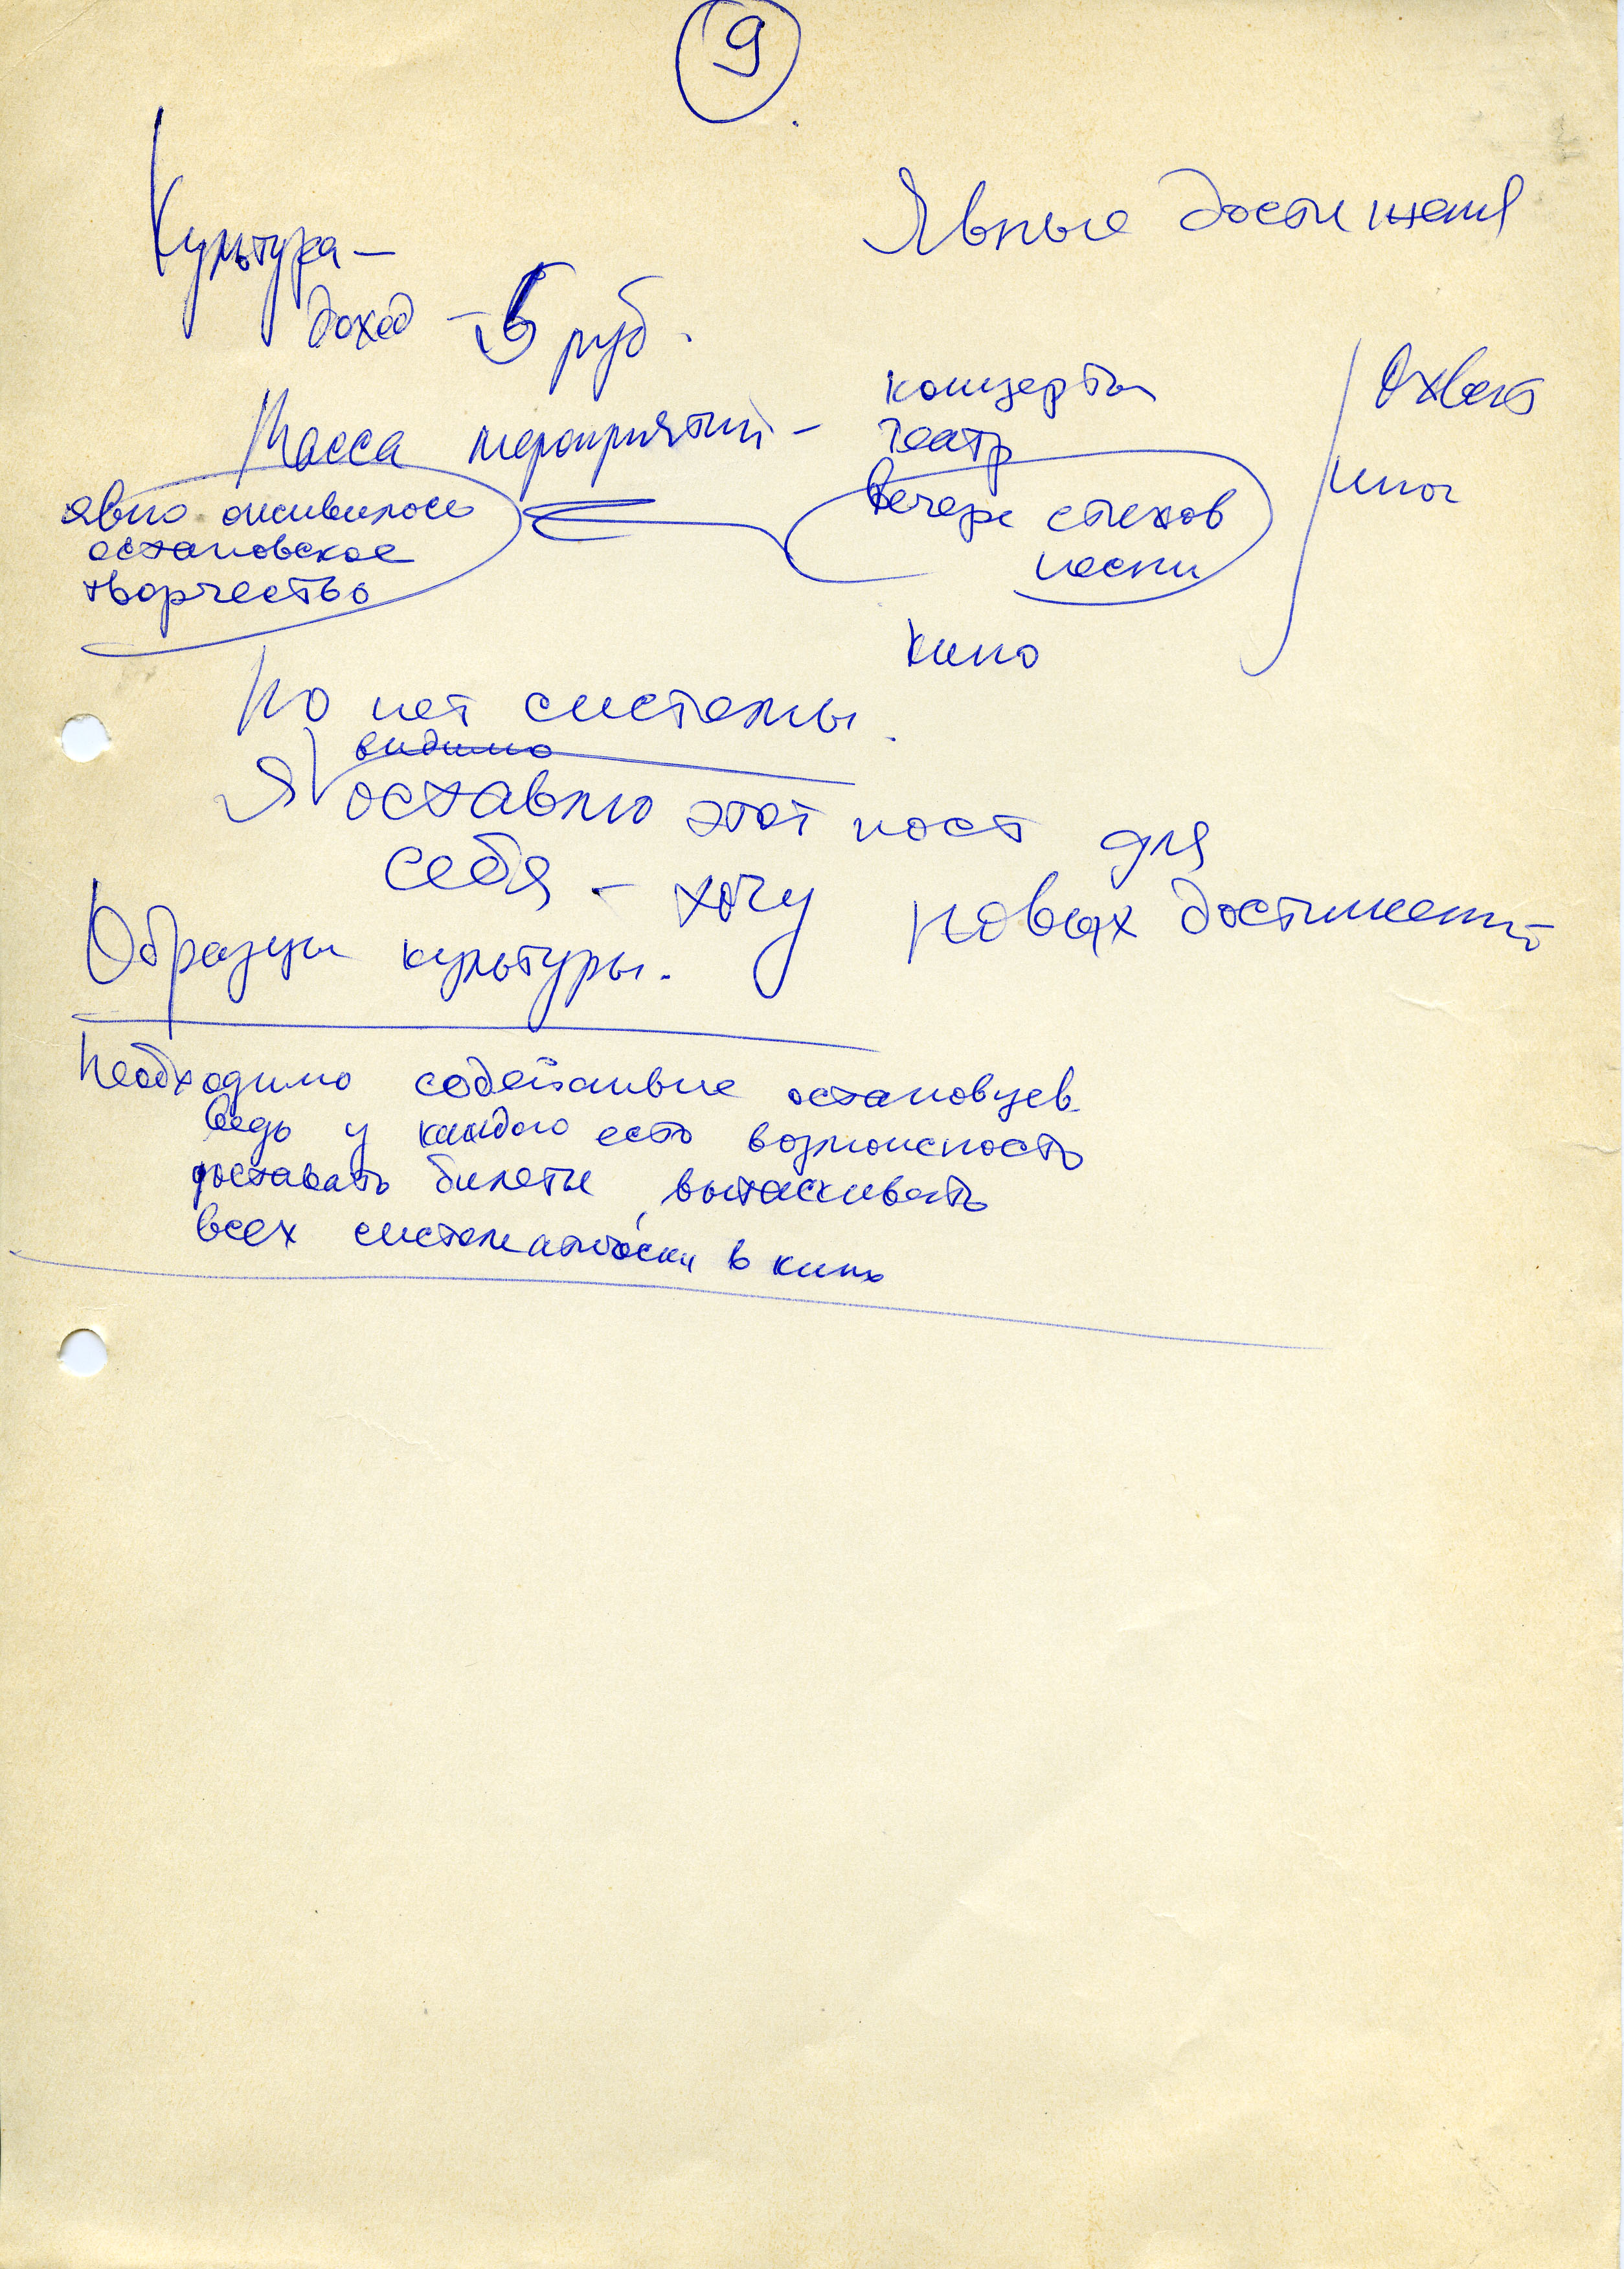 9
Явные достижения
Культура –
доход – руб.
Масса мероприятий –
концерты
театр
вечера стихов
песни
кино
Охват
явно оживилось
остановское
творчество
Но нет системы.
видимо
Я оставлю этот пост для
себя – хочу новых достижений
Образцы культуры.
Необходимо содействие остановцев.
Ведь у каждого есть возможность
доставать билеты, вытаскивать
всех систематически в кино